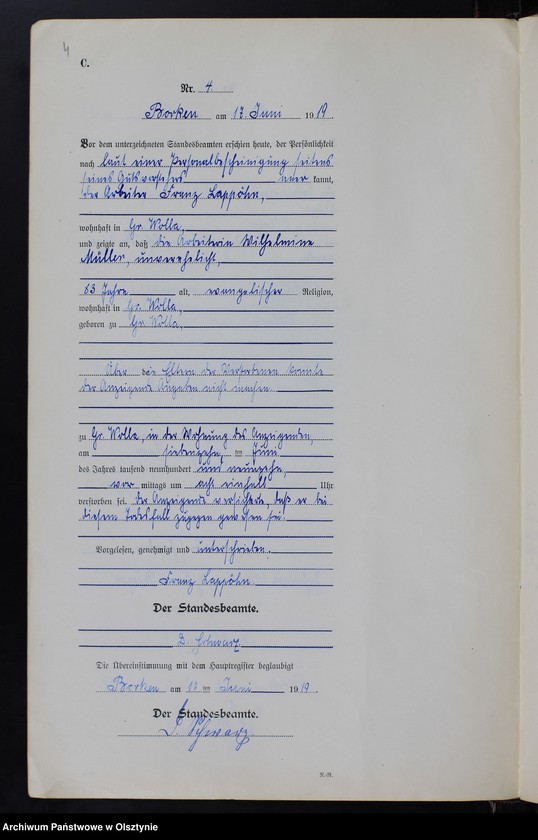 4
C.
Nr. 4
Borken am 18. Juni 1919.
Vor dem unterzeichneten Standesbeamten erschien heute, der Persönlichkeit
nach laut einer Personalbescheinigung seitens
seines Gutsvorstehers kannt,
der Arbeiter Franz Lappöhn,
wohnhaft in Gr. Wolla,
und zeigte an, daß die Arbeiterin Wilhelmine
Müller, unverehelicht,
63 Jahre alt, evangelischer Religion,
wohnhaft in Gr. Wolla,
geboren zu Gr. Wolla,
Über die Eltern der Verstorbenen konnte
der Anzeigende Angaben nicht machen.
zu Gr. Wolla, in der Wohnung des Anzeigenden,
am siebenzehn, ten Juni
des Jahres tausend neunhundert und neunzehn,
vor mittags um acht einhalb Uhr
verstorben sei. Der Anzeigende versicherte, daß er bei
diesem Todesfall zugegen gewesen sei.
Vorgelesen, genehmigt und unterschrieben.
Franz Lappöhn.
Der Standesbeamte.
Schwarz
Die Übereinstimmung mit dem Hauptregister beglaubigt
Borken am 18 ten Juni 1919.
Der Standesbeamte.
Schwarz.
R.-R.
Archiwum Państwowe w Olsztynie